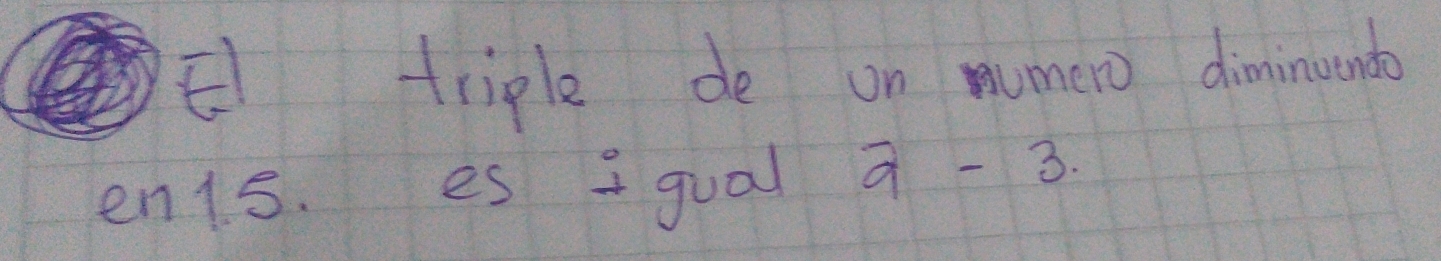 El triple de un numero diminuendo
en 15. es igual a - 3.